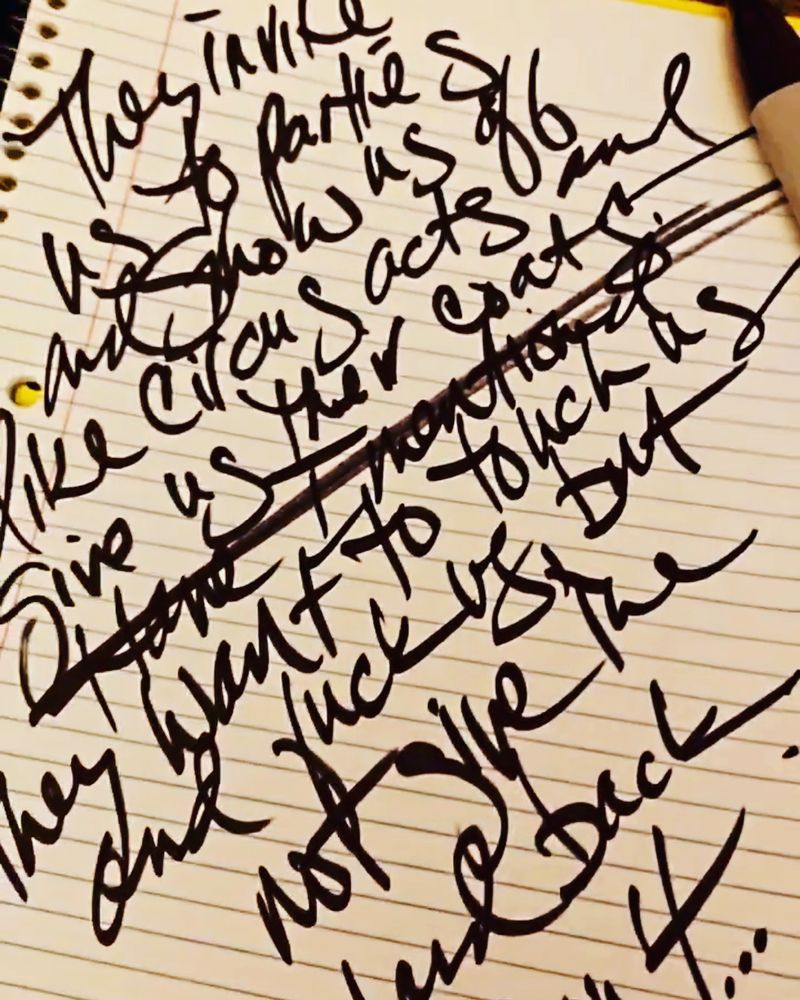 They invite
us to parties
and show us off
like circus acts and
give us their coats.
Have I mentioned
They want to touch us
and fuck us but
not give the
land back.